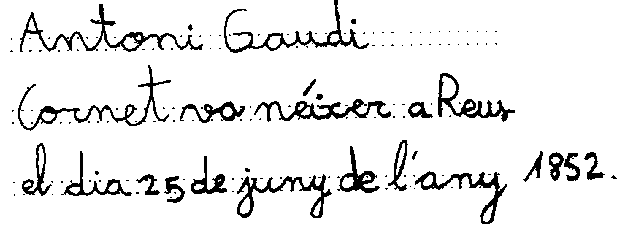 Antoni Gaudi
Cornet va néixer a Reus
el dia 25 de juny de l'any 1852.